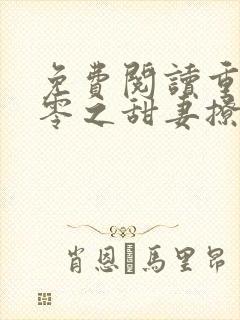 免費閱讀重
零之甜妻撩
肖恩·馬里昂